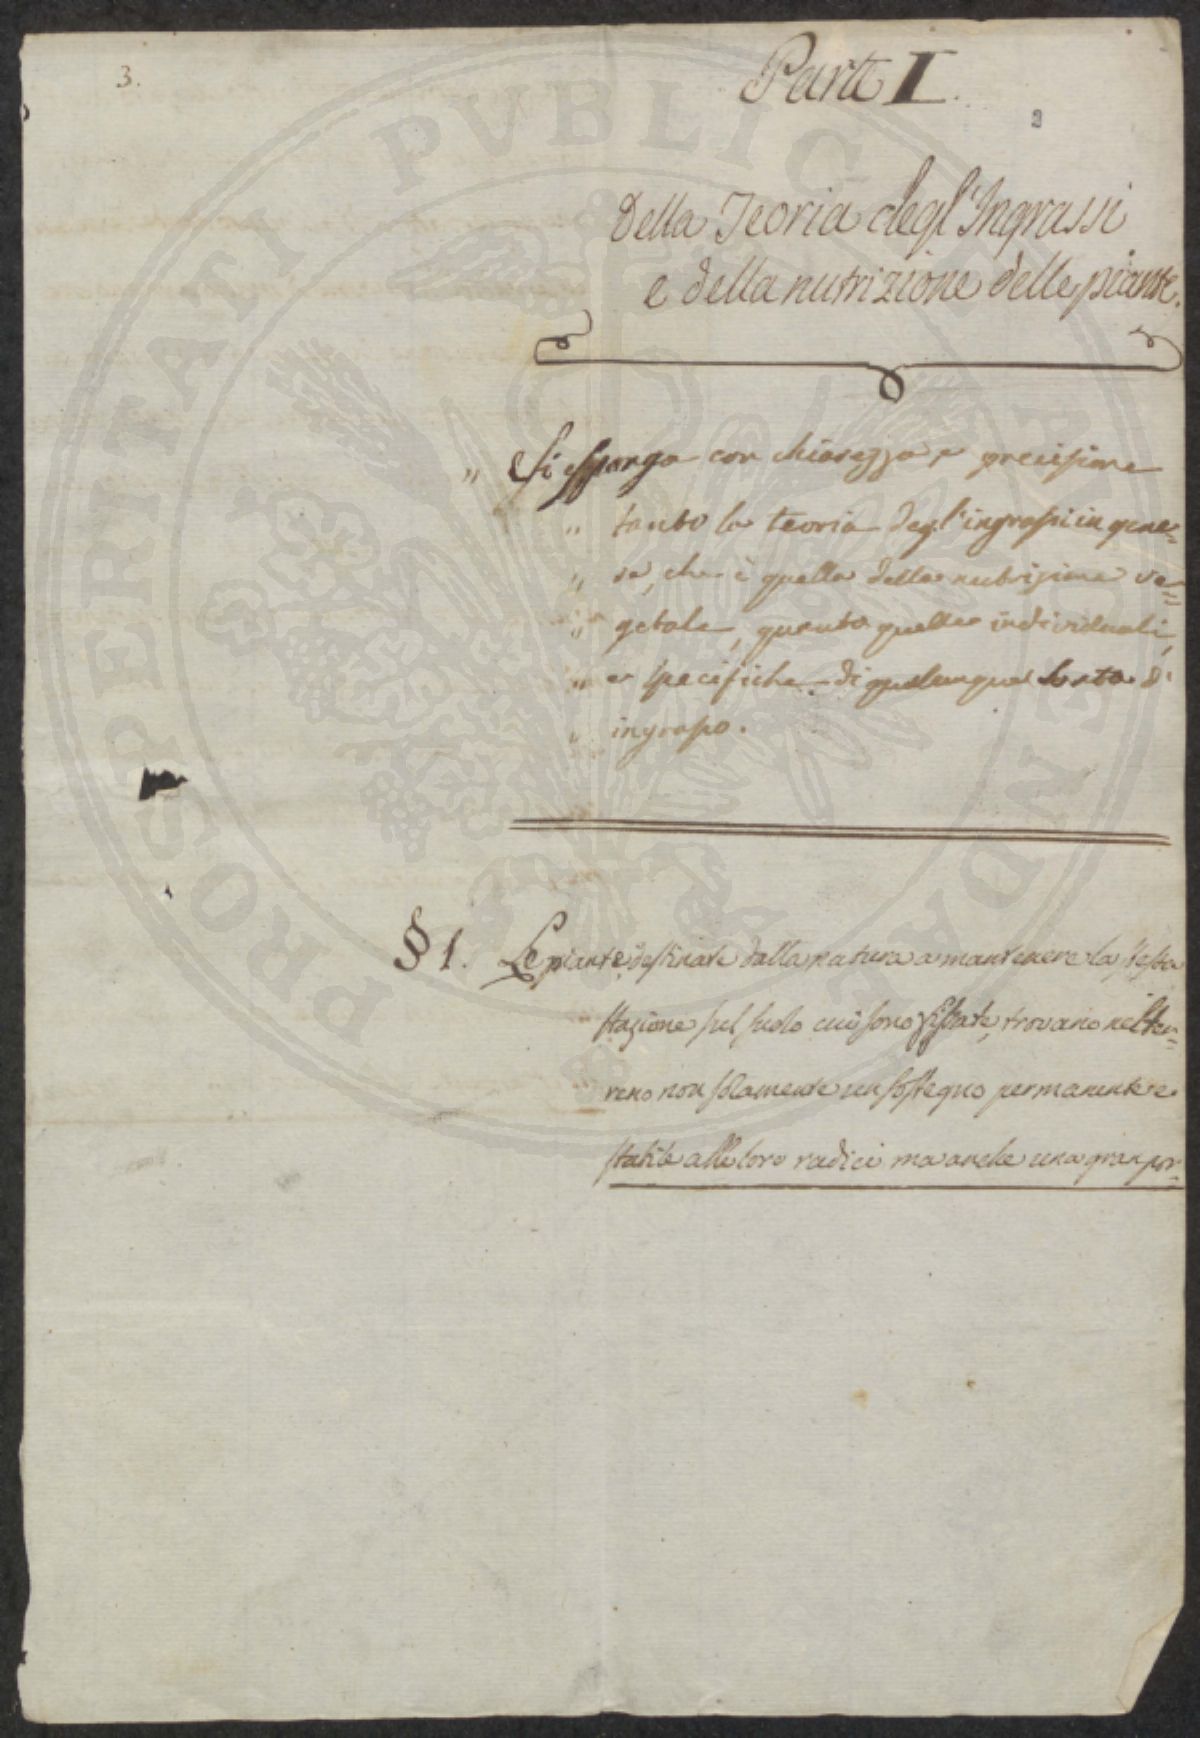 3.
Parte I.
2
Della Teoria degl'Ingrassi
e della nutrizione delle piante.
„ Si esponga con chiarezza e precisione
„ tanto la teoria degl'ingrassi in gene=
„ re, che è quella della nutrizione ve=
„ getale, quanto quelle individuali,
„ e specifiche di qualunque sorta di
„ ingrasso.
§ 1. Le piante destinate dalla natura a mantenere la stessa
stazione sul suolo cui sono fissate, trovano nel ter=
reno non solamente un sostegno permanente e
stabile alle loro radici ma anche una gran por=
PROSPERITATI PVBLICAE AVGENDAE